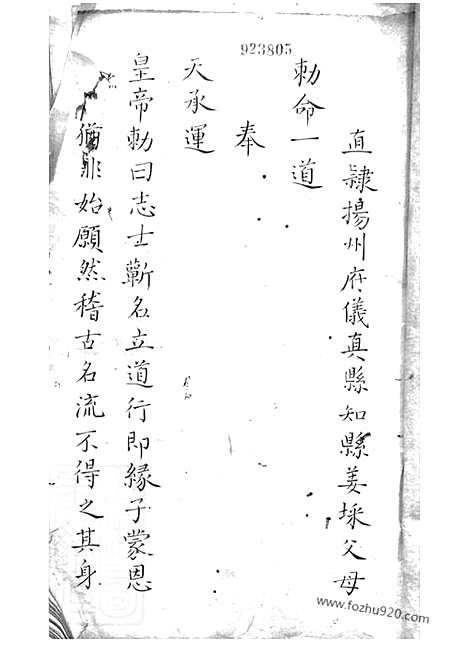 923805
直隸揚州府儀真縣知縣姜埰父母
勅命一道
奉
天承運
皇帝勅曰志士蘄名立道行即緣子蒙恩
猶非始願然稽古名流不得之其身
www.fozhu920.com